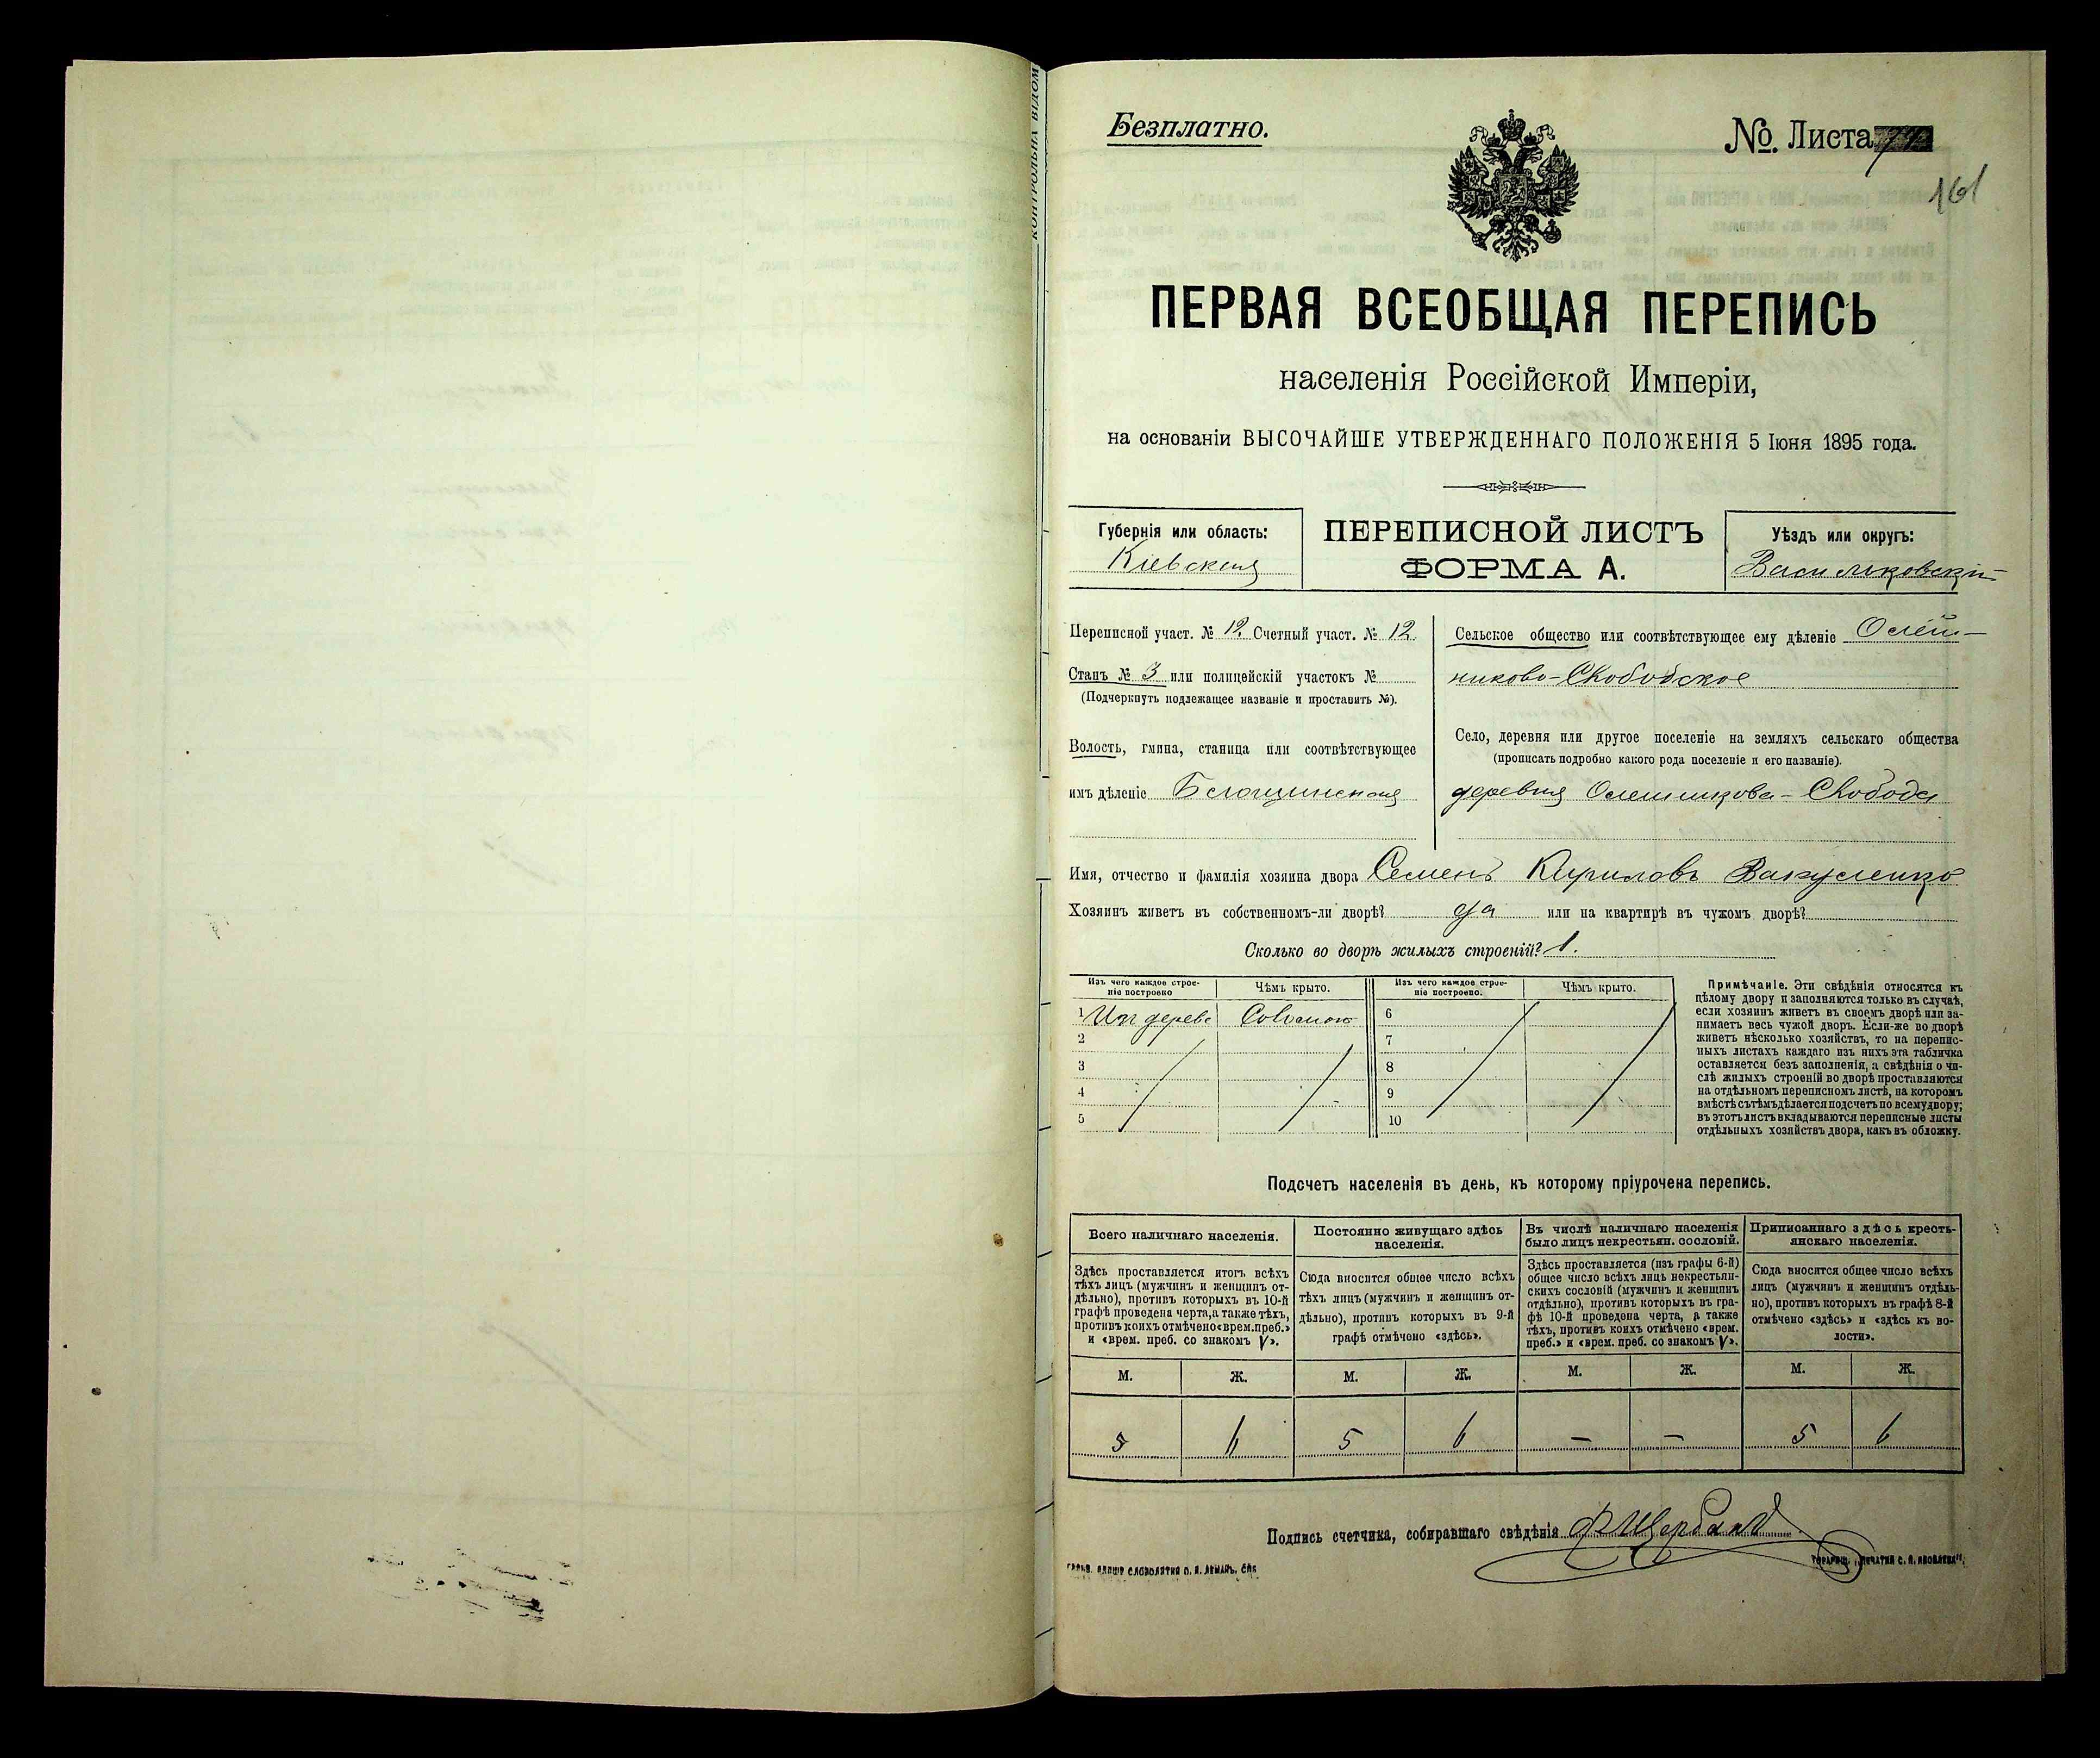 Безплатно.
№. Листа 77
161
ПЕРВАЯ ВСЕОБЩАЯ ПЕРЕПИСЬ
населенія Россійской Имперіи,
на основаніи ВЫСОЧАЙШЕ УТВЕРЖДЕННАГО ПОЛОЖЕНІЯ 5 Іюня 1895 года.
Губернія или область:
Кіевская
ПЕРЕПИСНОЙ ЛИСТЪ
ФОРМА А.
Уѣздъ или округъ:
Васильковскій
Переписной участ. № 12. Счетный участ. № 12
Станъ № 3 или полицейскій участокъ №
(Подчеркнуть подлежащее названіе и проставить №).
Волость, гмина, станица или соотвѣтствующее
имъ дѣленіе
Сельское общество или соотвѣтствующее ему дѣленіе Олей-
никово-Слободское
Село, деревня или другое поселеніе на земляхъ сельскаго общества
(прописать подробно какого рода поселеніе и его названіе).
деревня Олейникова-Слобода
Имя, отчество и фамилія хозяина двора Семенъ Кириловъ Вакуленко
Хозяинъ живетъ въ собственномъ-ли дворѣ? да или на квартирѣ въ чужомъ дворѣ?
Сколько во дворѣ жилыхъ строеній? 1.
Изъ чего каждое строе-
ніе построено
Чѣмъ крыто.
Изъ чего каждое строе-
ніе построено.
Чѣмъ крыто.
1 Изъ дерева Соломою
2
3
4
5
6
7
8
9
10
Примѣчаніе. Эти свѣдѣнія относятся къ
цѣлому двору и заполняются только въ случаѣ,
если хозяинъ живетъ въ своемъ дворѣ или за-
нимаетъ весь чужой дворъ. Если-же во дворѣ
живетъ нѣсколько хозяйствъ, то на перепис-
ныхъ листахъ каждаго изъ нихъ эта табличка
оставляется безъ заполненія, а свѣдѣнія о чи-
слѣ жилыхъ строеній во дворѣ проставляются
на отдѣльномъ переписномъ листѣ, на которомъ
вмѣстѣ съ тѣмъ дѣлается подсчетъ по всему двору;
въ этотъ листъ вкладываются переписные листы
отдѣльныхъ хозяйствъ двора, какъ въ обложку.
Подсчетъ населенія въ день, къ которому пріурочена перепись.
Всего наличнаго населенія.
Здѣсь проставляется итогъ всѣхъ
тѣхъ лицъ (мужчинъ и женщинъ от-
дѣльно), противъ которыхъ въ 10-й
графѣ проведена черта, а также тѣхъ,
противъ коихъ отмѣчено «врем. преб.»
и «врем. преб. со знакомъ V».
Постоянно живущаго здѣсь
населенія.
Сюда вносится общее число всѣхъ
тѣхъ лицъ (мужчинъ и женщинъ от-
дѣльно), противъ которыхъ въ 9-й
графѣ отмѣчено «здѣсь».
Въ числѣ наличнаго населенія
было лицъ некрестьян. сословій.
Здѣсь проставляется (изъ графы 6-й)
общее число всѣхъ лицъ некрестьян-
скихъ сословій (мужчинъ и женщинъ
отдѣльно), противъ которыхъ въ гра-
фѣ 10-й проведена черта, а также
тѣхъ, противъ коихъ отмѣчено «врем.
преб.» и «врем. преб. со знакомъ V».
Приписаннаго здѣсь кресть-
янскаго населенія.
Сюда вносится общее число всѣхъ
лицъ (мужчинъ и женщинъ отдѣль-
но), противъ которыхъ въ графѣ 8-й
отмѣчено «здѣсь» и «здѣсь къ во-
лости».
М. Ж. М. Ж. М. Ж. М. Ж.
5 6 5 6 — — 5 6
Подпись счетчика, собиравшаго свѣдѣнія